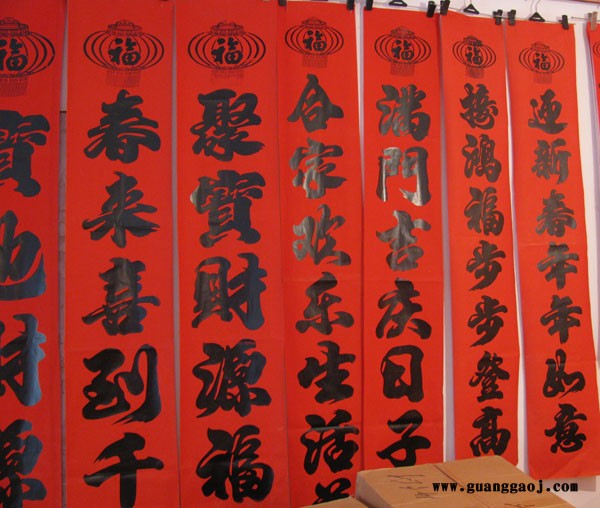 福
迎新春年年如意
福
接鸿福步步登高
福
满门吉庆日子
福
合家欢乐生活
福
聚寶財源福
福
春来喜到千
福
寶地財源
www.guanggaoj.com